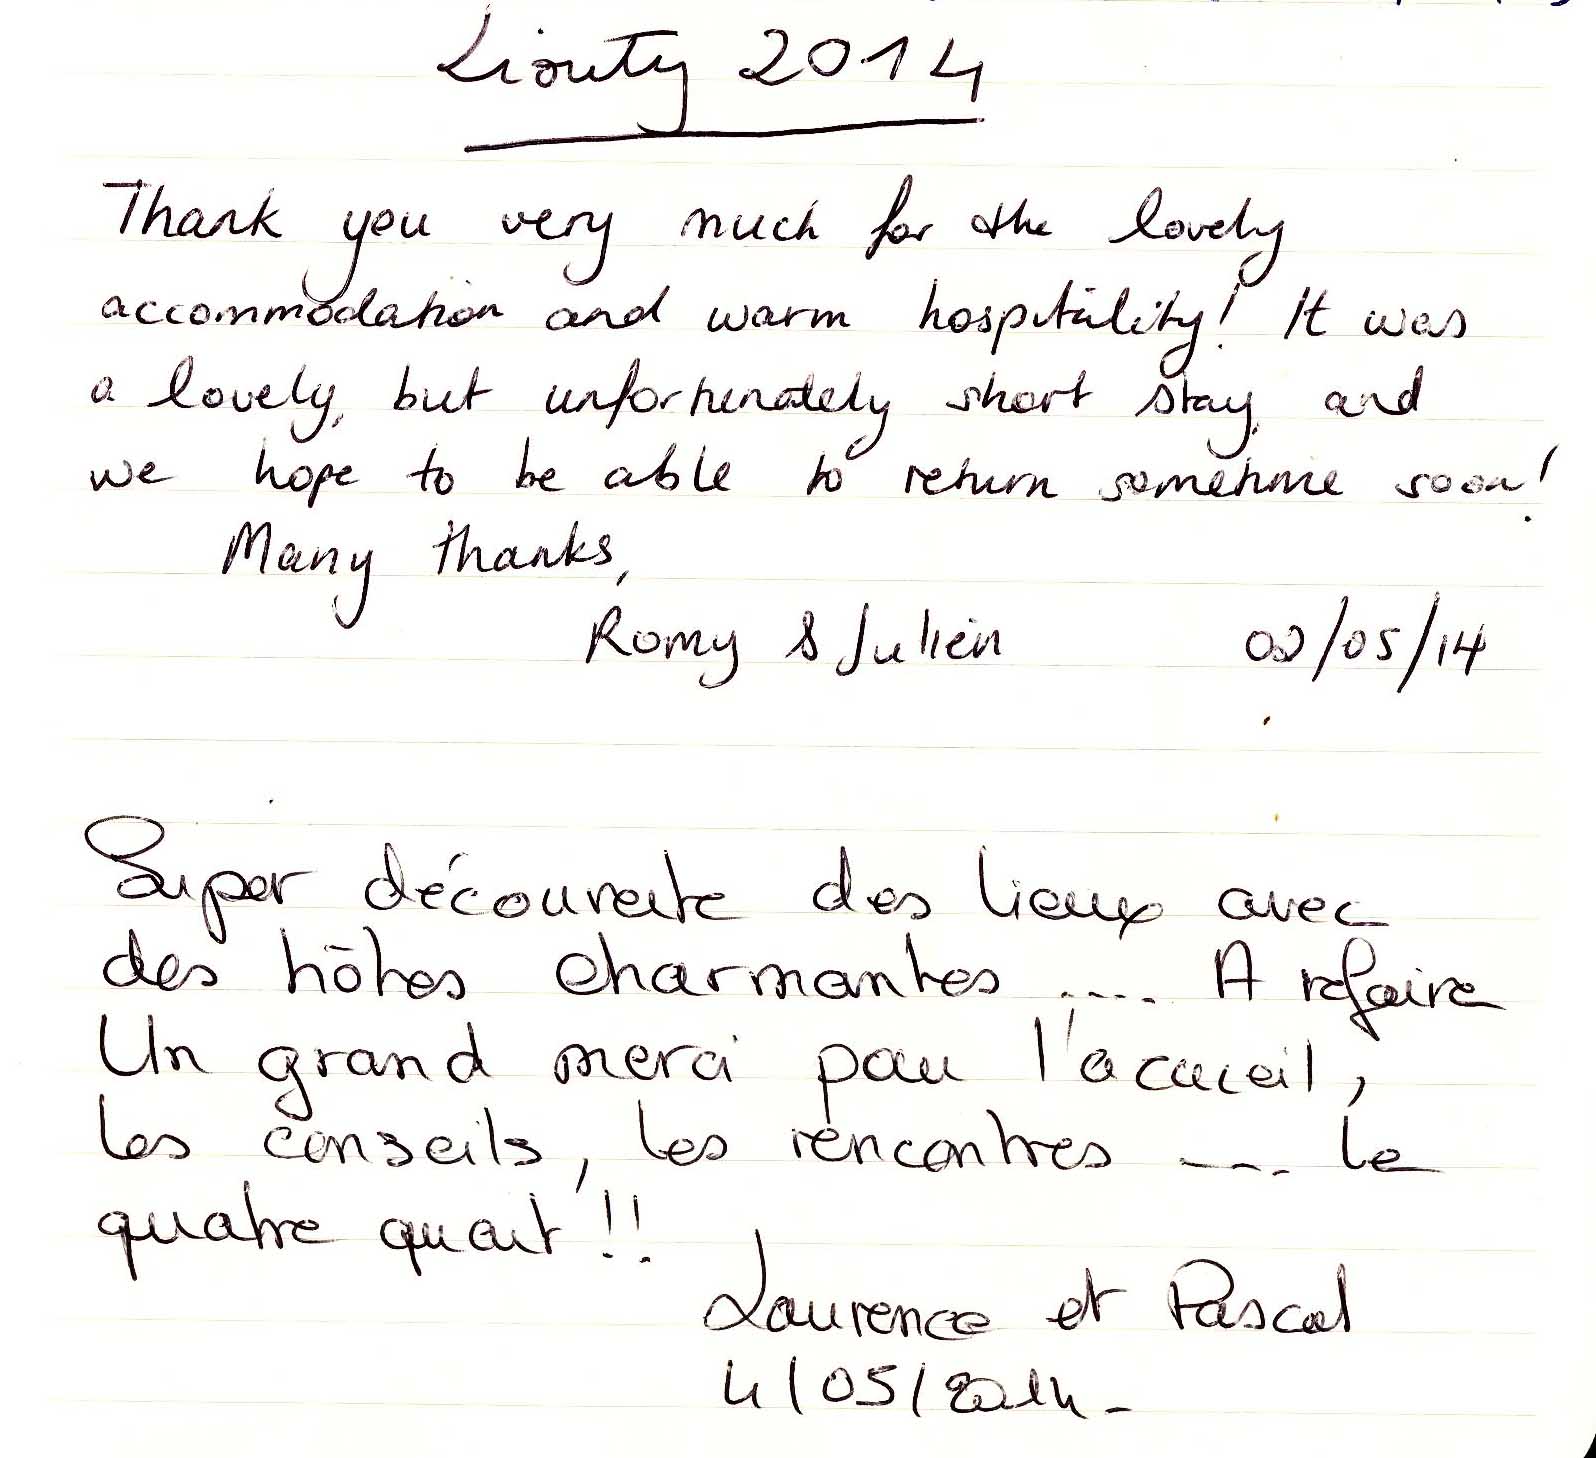 Liouty 2014
Thank you very much for the lovely
accommodation and warm hospitality! It was
a lovely, but unfortunately short stay, and
we hope to be able to return sometime soon!
Many thanks,
Romy & Julien /05/14
Super découverte des lieux avec
des hôtes charmantes .... A refaire
Un grand merci pour l'accueil,
les conseils, les rencontres .... le
quatre quart !!
Laurence et Pascal
4/05/2014.